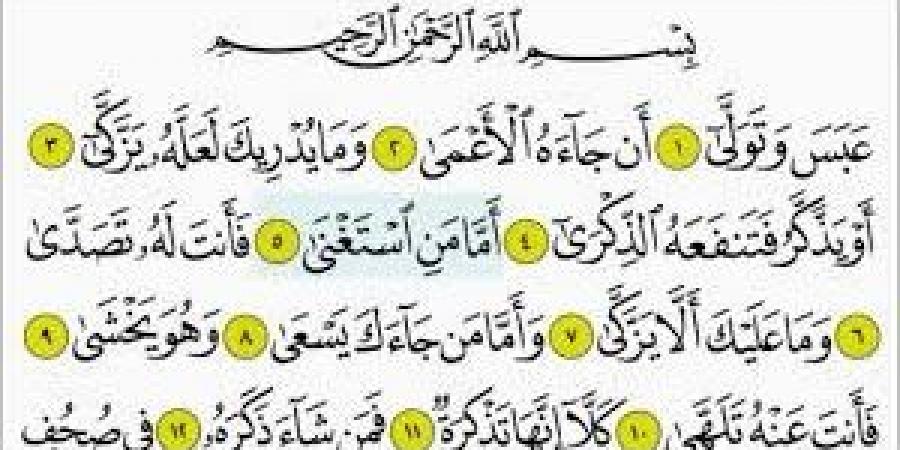 بِسْمِ ٱللَّهِ ٱلرَّحْمَٰنِ ٱلرَّحِيمِ
عَبَسَ وَتَوَلَّىٰٓ ١ أَن جَآءَهُ ٱلْأَعْمَىٰ ٢ وَمَا يُدْرِيكَ لَعَلَّهُۥ يَزَّكَّىٰٓ ٣
أَوْ يَذَّكَّرُ فَتَنفَعَهُ ٱلذِّكْرَىٰٓ ٤ أَمَّا مَنِ ٱسْتَغْنَىٰ ٥ فَأَنتَ لَهُۥ تَصَدَّىٰ
٦ وَمَا عَلَيْكَ أَلَّا يَزَّكَّىٰ ٧ وَأَمَّا مَن جَآءَكَ يَسْعَىٰ ٨ وَهُوَ يَخْشَىٰ ٩
فَأَنتَ عَنْهُ تَلَهَّىٰ ١٠ كَلَّآ إِنَّهَا تَذْكِرَةٌ ١١ فَمَن شَآءَ ذَكَرَهُۥ ١٢ فِى صُحُفٍ